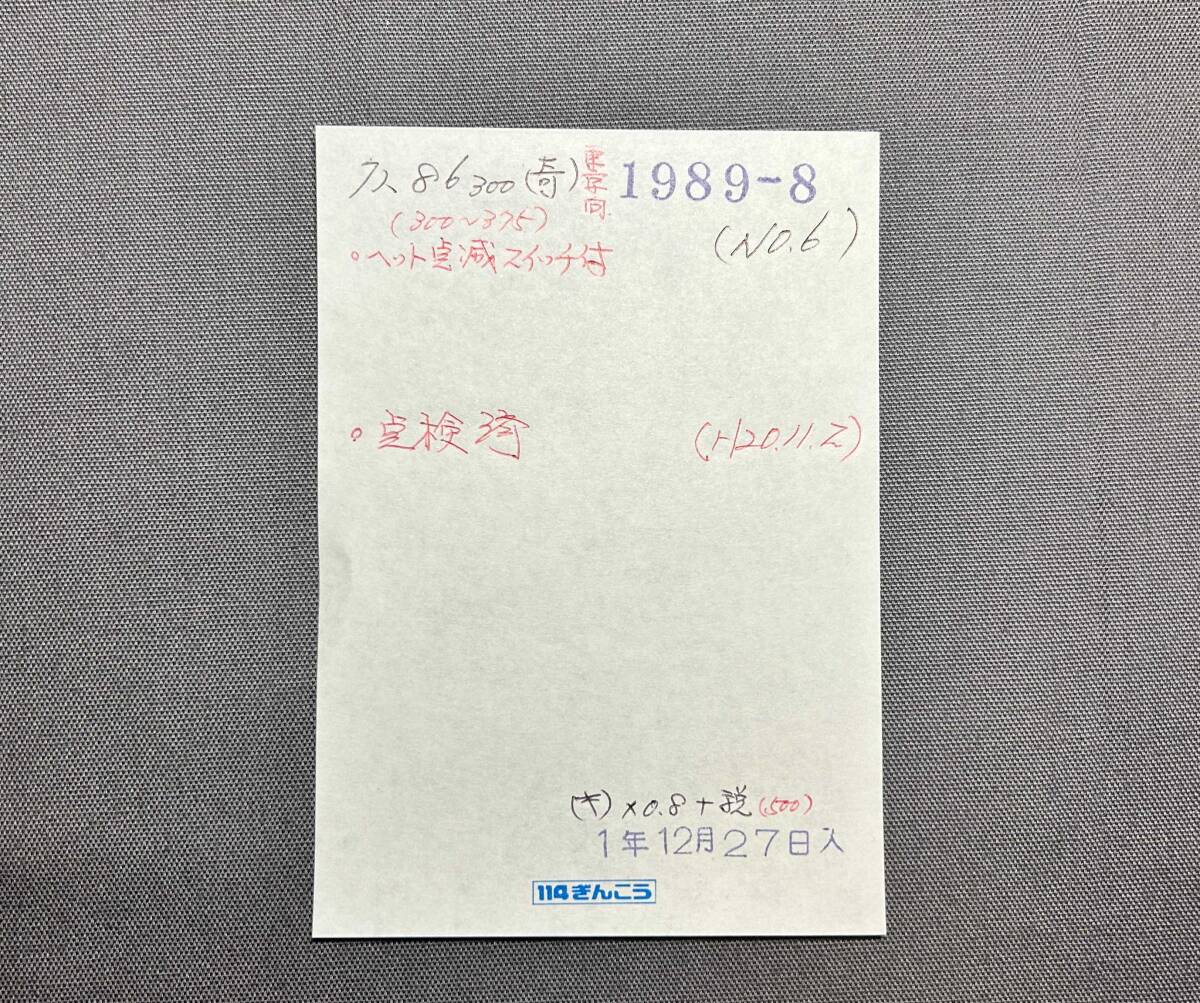 クハ 86 300 (奇) 東京向 1989-8
(300~375) (NO.6)
・ヘット点滅スイッチ付
・点検済 (H20.11.2)
(キ) ×0.8 + 税 (.500)
1年12月27日入
114ぎんこう